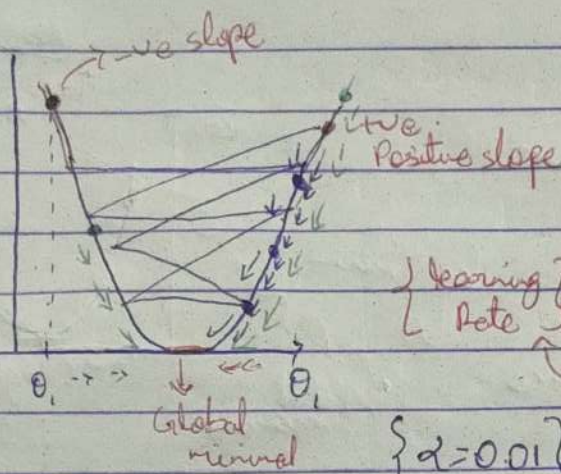 -ve slope
+ve.
Positive slope
{ learning }
{ Rate }
θ₁
θ₁
Global
minimal
{α=0.01}